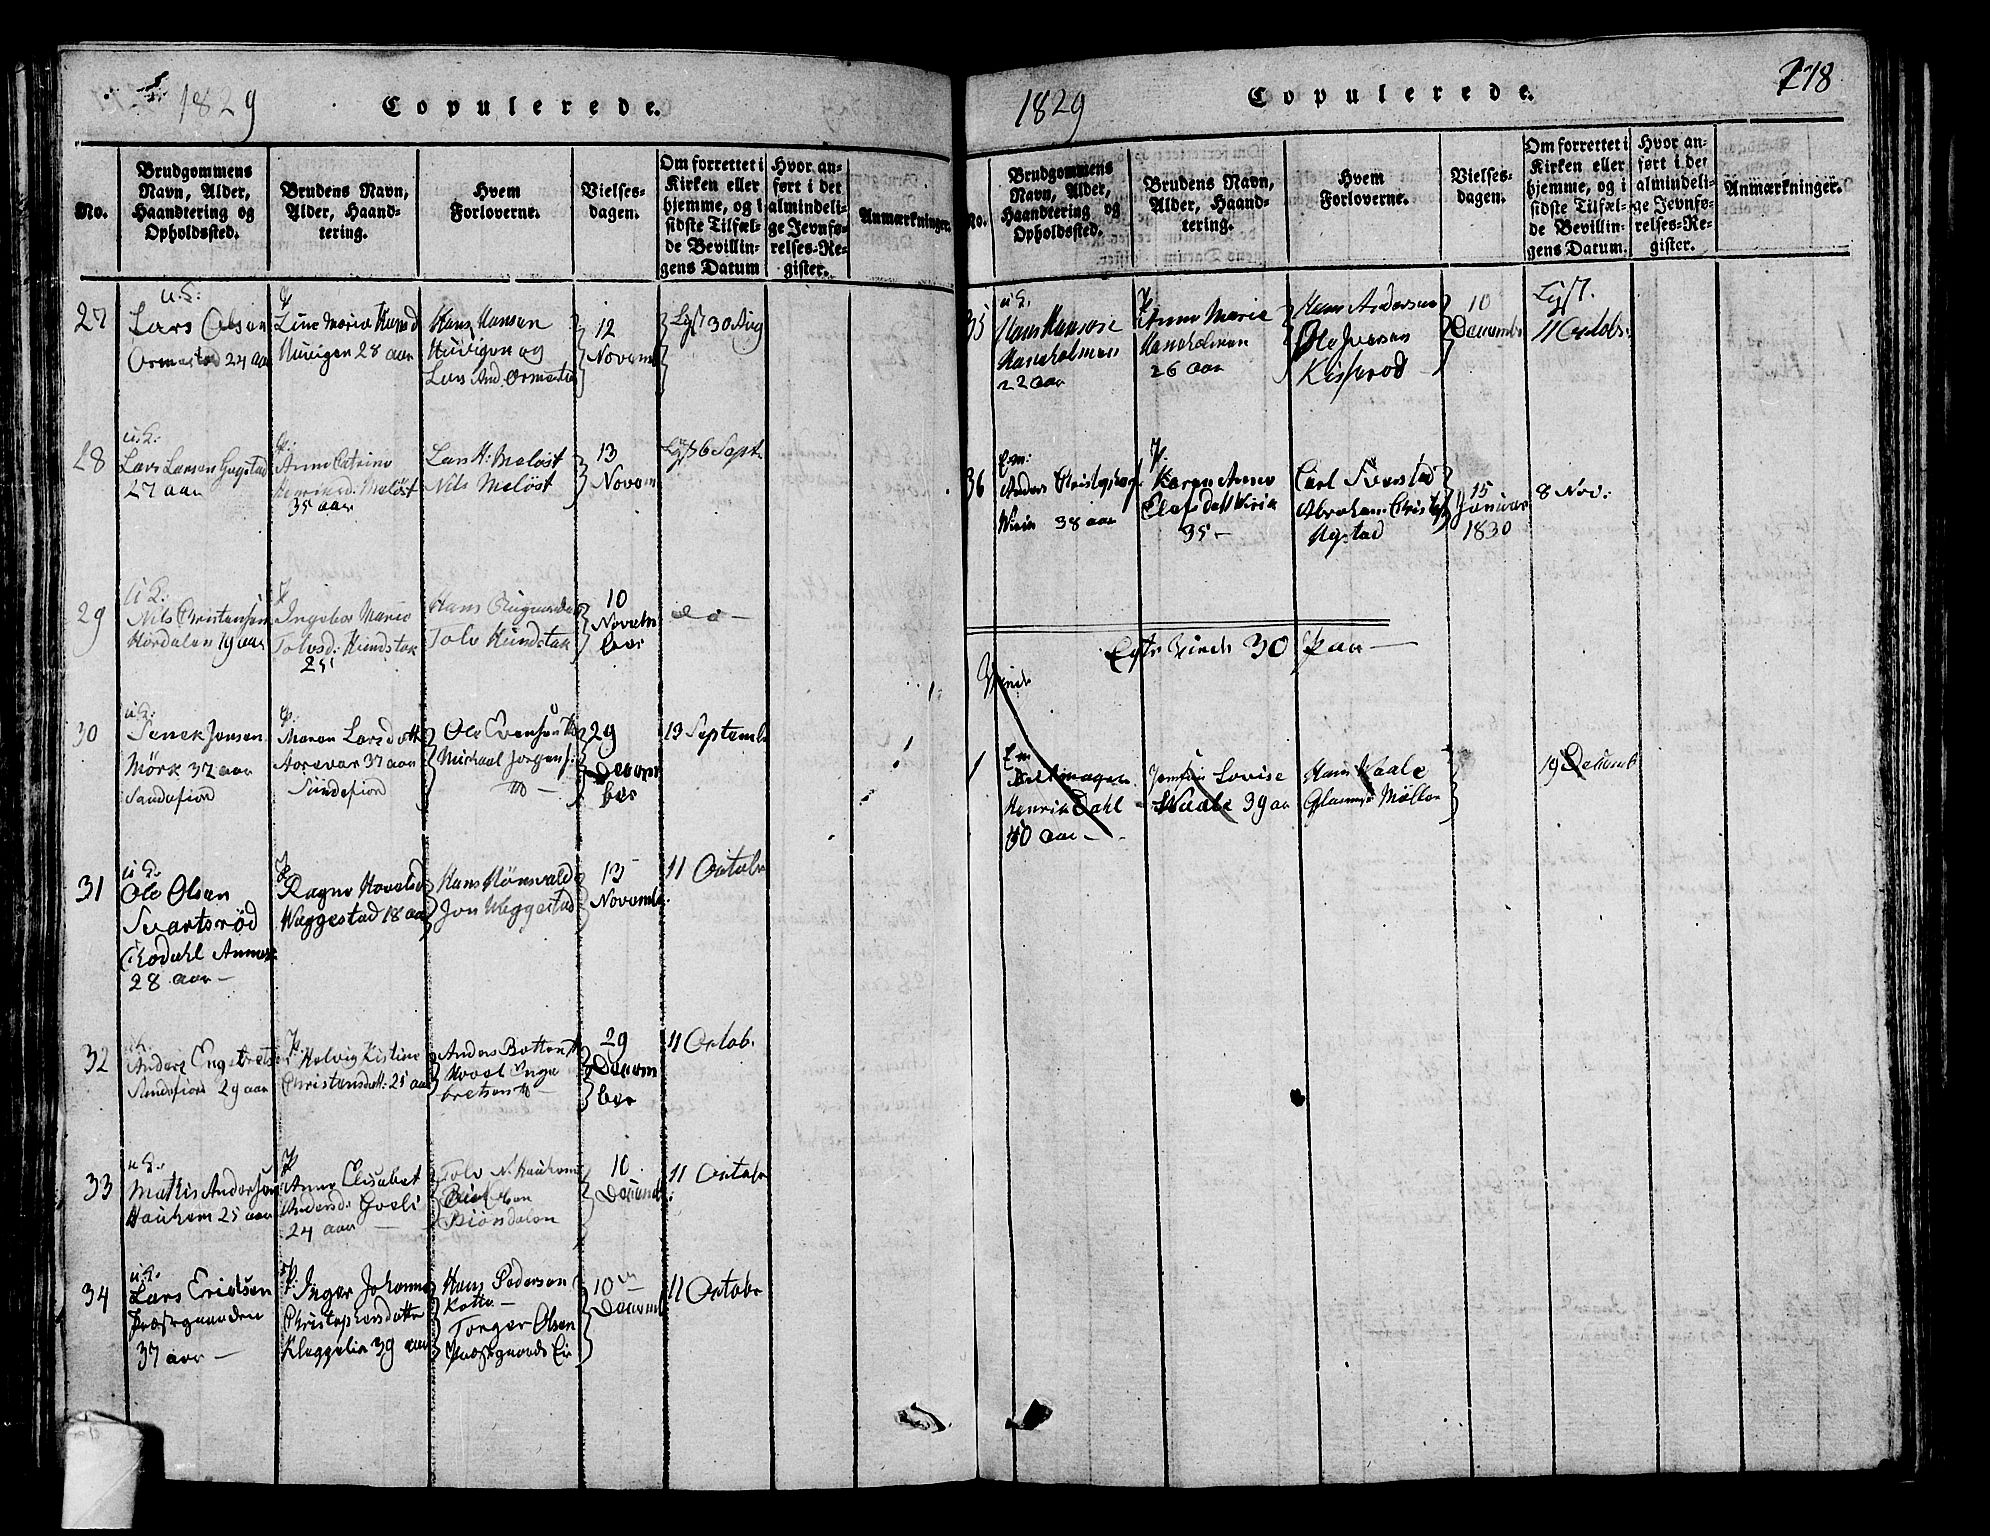 1829
Copulerede.
No.
Brudgommens
Navn, Alder,
Haandtering og
Opholdssted.
Brudens Navn,
Alder, Haand-
tering.
Hvem
Forloverne.
Vielses-
dagen.
Om forrettet i
Kirken eller
hjemme, og i
sidste Tilfæl-
de Bevillin-
gens Datum
Hvor an-
ført i det
almindeli-
ge Jevnfø-
relses-Re-
gister.
Anmærkninger.
27
u.K:
Lars Olsen
Ormestad 24 aar
p
Line Marie Hansd
Huvigen 28 aar
Hans Hansen
Huvigen og
Lars And. Ormestad
12
Novemb
Lyst 30 Aug
28
u.K:
Lars Larsen Hugstad
27 aar
p:
Anne Catrine
Meløst
35 aar
Lars H: Meløst
Nils Meløst
13
Novem
Lyst 6 Sept.
29
u K:
Nils Christensen
Hordalen 19 aar
p
Ingebor Marie
Tolvsd: Hundstok
25
Hans
Tolv Hundstok
10
Novem
ber
do —
30
u.K:
Jensen
Mörk 37 aar
Sandefiord
p:
Maren Larsdatt
37 aar
Sandefiord
Ole Evensen
Michael Jørgens:
29
Decem
ber
13 Septemb
31
u K.
Ole Olsen
Svartsrød
Annex
28 aar —
p
Ragne
Weggestad 18 aar
Hans Hönsvald
Jon Weggestad
13
Novemb.
11 Octobr
32
u.K.
Anders Engebrets
Sandefiord 29 aar
p
Helvig Kistine
Christensdatt: 25 aar
Anders
Inge
bretsen
29
Decem
ber
11 Octob.
33
u K.
Mathis Andersen
Haukem 25 aar
p
Anne Elisabet
Andersd: Goeli
24 aar —
Tolv N. Haukem
Olsen
Biöndalen
10
Decemb
11 Octobr
34
u.K.
Lars Ericksen
Præstgaarden
37 aar —
p.
Inger Johanne
Christophersdatter
Kleggelie 39 aar
Hans Pedersen
—
Torger Olsen
Præstgaards Eie
10
Decemb
11 Octobr
1829
Copulerede.
218
No.
Brudgommens
Navn, Alder,
Haandtering og
Opholdssted.
Brudens Navn,
Alder, Haand-
tering.
Hvem
Forloverne.
Vielses-
dagen.
Om forrettet i
Kirken eller
hjemme, og i
sidste Tilfæl-
de Bevillin-
gens Datum.
Hvor an-
ført i det
almindeli-
ge Jevnfø-
relses-Re-
gister.
Anmærkninger.
35
u K.
Hans Hansen
Haneholmen
22 aar
p
Anne Marie
Haneholmen
26 aar
Hans Andersen
Ole Iversen
Kisserød
10
Decemb
Lyst.
11 Octob:
36
Em:
Anders Christophers
38 aar
p.
Karen Anne
Elefsdatt
35 —
Carl
Abraham Christ
Hystad
15
Januar
1830
8 Nov:
30 Par —
1
Em
Henrik Dahl
Lovise
Waale 39 aar
Hans Waale
Møller
19 Decemb